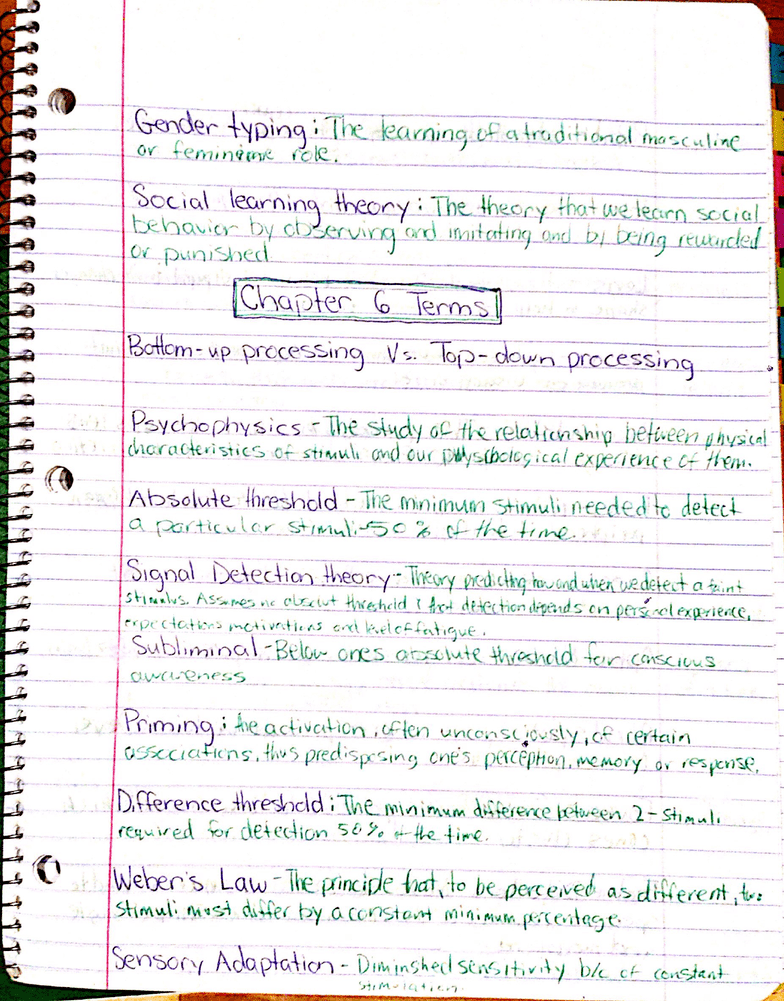 Gender typing: The learning of a traditional masculine
or feminine role.
Social learning theory: The theory that we learn social
behavior by observing and imitating and by being rewarded
or punished
Chapter 6 Terms
Bottom-up processing Vs. Top-down processing
Psychophysics - The study of the relationship between physical
characteristics of stimuli and our psychological experience of them.
Absolute threshold - The minimum stimuli needed to detect
a particular stimuli - 50% of the time.
Signal Detection theory - Theory predicting how and when we detect a faint
stimulus. Assumes no absolut threshold & that detection depends on personal experience,
expectations motivations and level of fatigue.
Subliminal - Below ones absolute threshold for conscious
awareness
Priming: the activation, often unconsciously, of certain
associations, thus predisposing one's perception, memory or response.
Difference threshold: The minimum difference between 2-stimuli
required for detection 50% of the time.
Weber's Law - The principle that, to be perceived as different, two
stimuli most differ by a constant minimum percentage.
Sensory Adaptation - Diminshed sensitivity b/c of constant
stimulation.